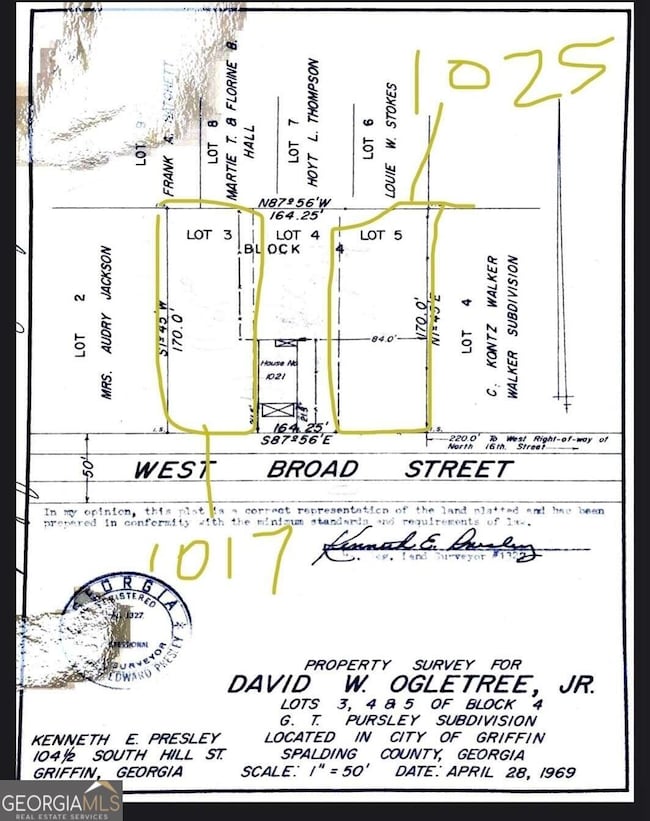 1025
LOT 9
FRANK A.
LOT 8
MARTIE T. & FLORINE B.
HALL
LOT 7
HOYT L. THOMPSON
LOT 6
LOUIE W. STOKES
N87º56'W
164.25'
LOT 3
LOT 4
LOT 5
BLOCK 4
LOT 2
MRS. AUDRY JACKSON
S1º45'W
170.0'
170.0'
N1º45'E
LOT 4
C. KONTZ WALKER
WALKER SUBDIVISION
84.0'
House No
1021
164.25'
S87º56'E
I.S.
220.0' To West Right-of-way of
North 16th. Street
50'
WEST BROAD STREET
In my opinion, this plat is a correct representation of the land platted and has been
prepared in conformity with the minimum standards and requirements of law.
Kenneth E. Presley
Land Surveyor #1327
1017
GEORGIA
REGISTERED
1327
PROFESSIONAL
SURVEYOR
EDWARD PRESLEY
PROPERTY SURVEY FOR
DAVID W. OGLETREE, JR.
LOTS 3, 4 & 5 OF BLOCK 4
G. T. PURSLEY SUBDIVISION
LOCATED IN CITY OF GRIFFIN
SPALDING COUNTY, GEORGIA
SCALE: 1" = 50' DATE: APRIL 28, 1969
KENNETH E. PRESLEY
104½ SOUTH HILL ST.
GRIFFIN, GEORGIA
GEORGIAMLS
REAL ESTATE SERVICES